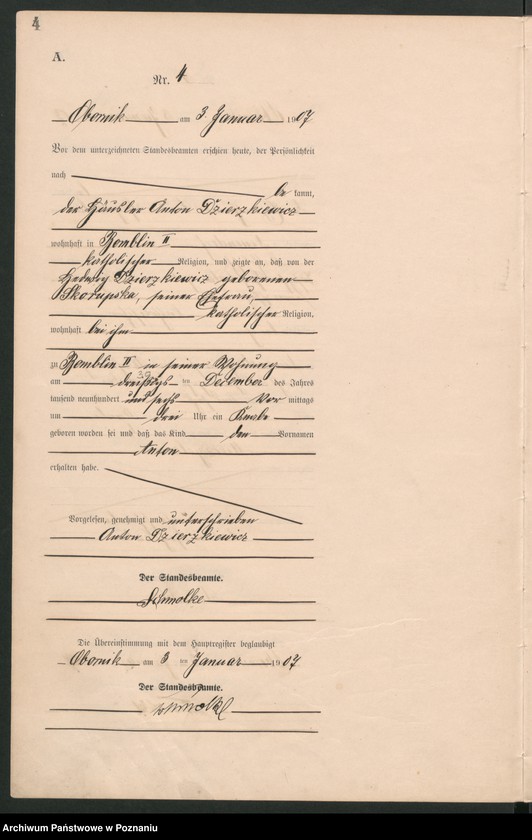 4
A.
Nr. 4
Obornik am 3. Januar 1907
Vor dem unterzeichneten Standesbeamten erschien heute, der Persönlichkeit
nach
be kannt,
der Häusler Anton Dzierzkiewicz
wohnhaft in Bomblin II
katholischer Religion, und zeigte an, daß von der
Hedwig Dzierzkiewicz geborenen
Skorupska, seiner Ehefrau,
katholischer Religion,
wohnhaft bei ihm
zu Bomblin II in seiner Wohnung
am dreißigs ten Dezember des Jahres
tausend neunhundert und sechs Vor mittags
um drei Uhr ein Knabe
geboren worden sei und daß das Kind den Vornamen
Anton
erhalten habe.
Vorgelesen, genehmigt und unterschrieben
Anton Dzierzkiewicz
Der Standesbeamte.
Schmolke
Die Übereinstimmung mit dem Hauptregister beglaubigt
Obornik am 3 ten Januar 1907
Der Standesbeamte.
Schmolke
Archiwum Państwowe w Poznaniu